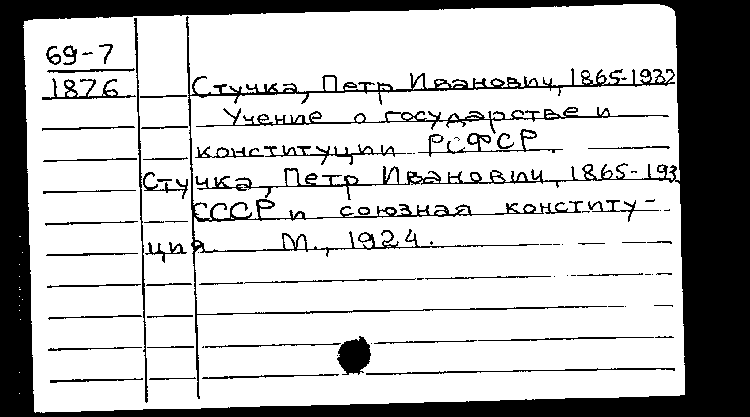 69-7
1876 Стучка, Петр Иванович, 1865-1932
Учение о государстве и
конституции РСФСР.
Стучка, Петр Иванович, 1865-193
СССР и союзная конститу-
ция М., 1924.